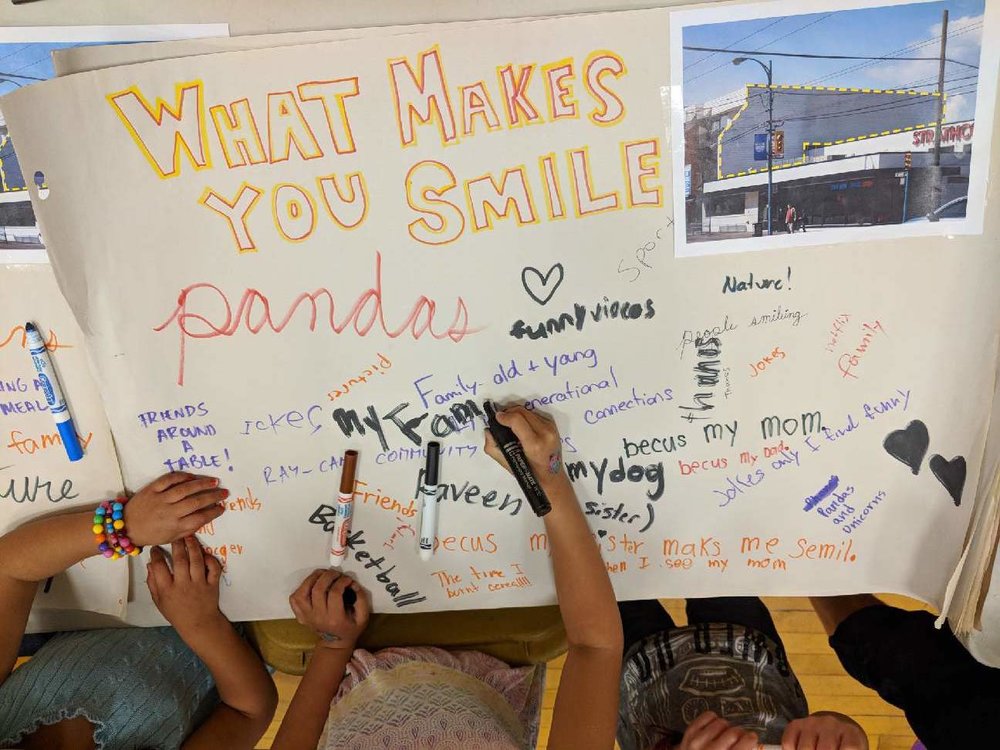 WHAT MAKES
YOU SMILE
STRATHCO
Sports
pandas
funny videos
Nature!
people smiling
thanos
Thanos
Jokes
netflix
family
pictures
Family - old + young
generational
connections
FRIENDS
AROUND
A
TABLE!
ickes
My Fam
RAY-CAM COMMUNITY
becus my mom.
becus my Dad.
Jokes only I find funny
mydog
(sister)
Friends
Raveen
Basketball
Pandas
and
unicorns
becus my sister maks me semil.
when I see my mom
The time I
burnt cereal!!!!
MEAL
family
ure